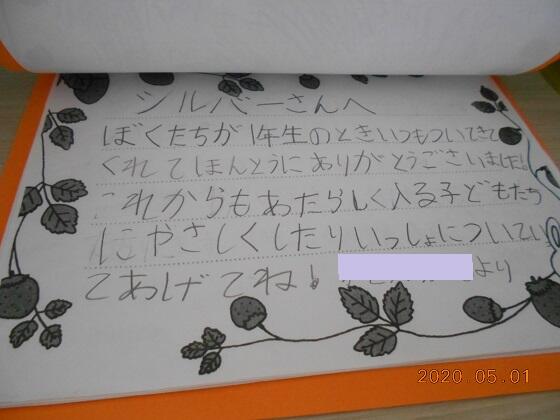 シルバーさんへ
ぼくたちが1年生のときいつもついてきて
くれてほんとうにありがとうございました。
これからもあたらしく入る子どもたち
にやさしくしたりいっしょについてい
てあげてね! より
2020.05.01